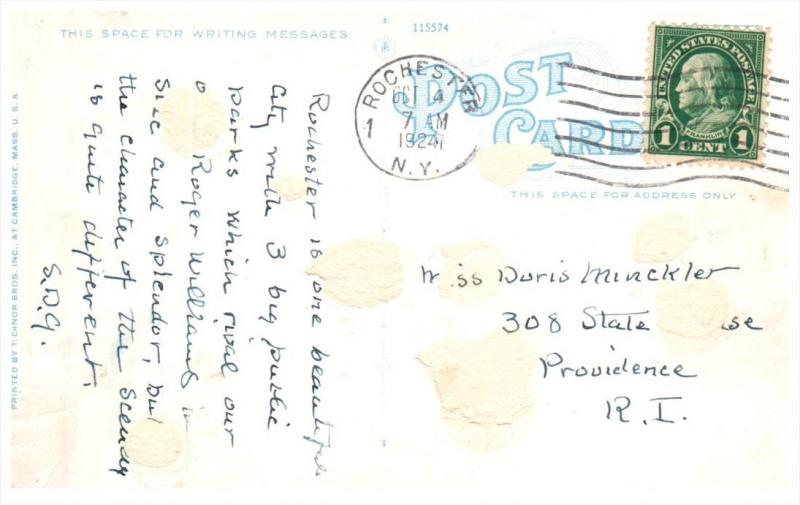 THIS SPACE FOR WRITING MESSAGES
115574
POST
CARD
ROCHESTER
OCT 4
7 AM
1924
N.Y.
1
UNITED STATES POSTAGE
FRANKLIN
1 CENT 1
THIS SPACE FOR ADDRESS ONLY
Rochester is one beautiful
City with 3 big public
parks which rival our
o Roger Williams in
Size and splendor, but
the character of the scenery
is quite different.
S.D.G.
Miss Doris Minckler
308 State se
Providence
R.I.
PRINTED BY TICHNOR BROS. INC., AT CAMBRIDGE, MASS. U.S.A.